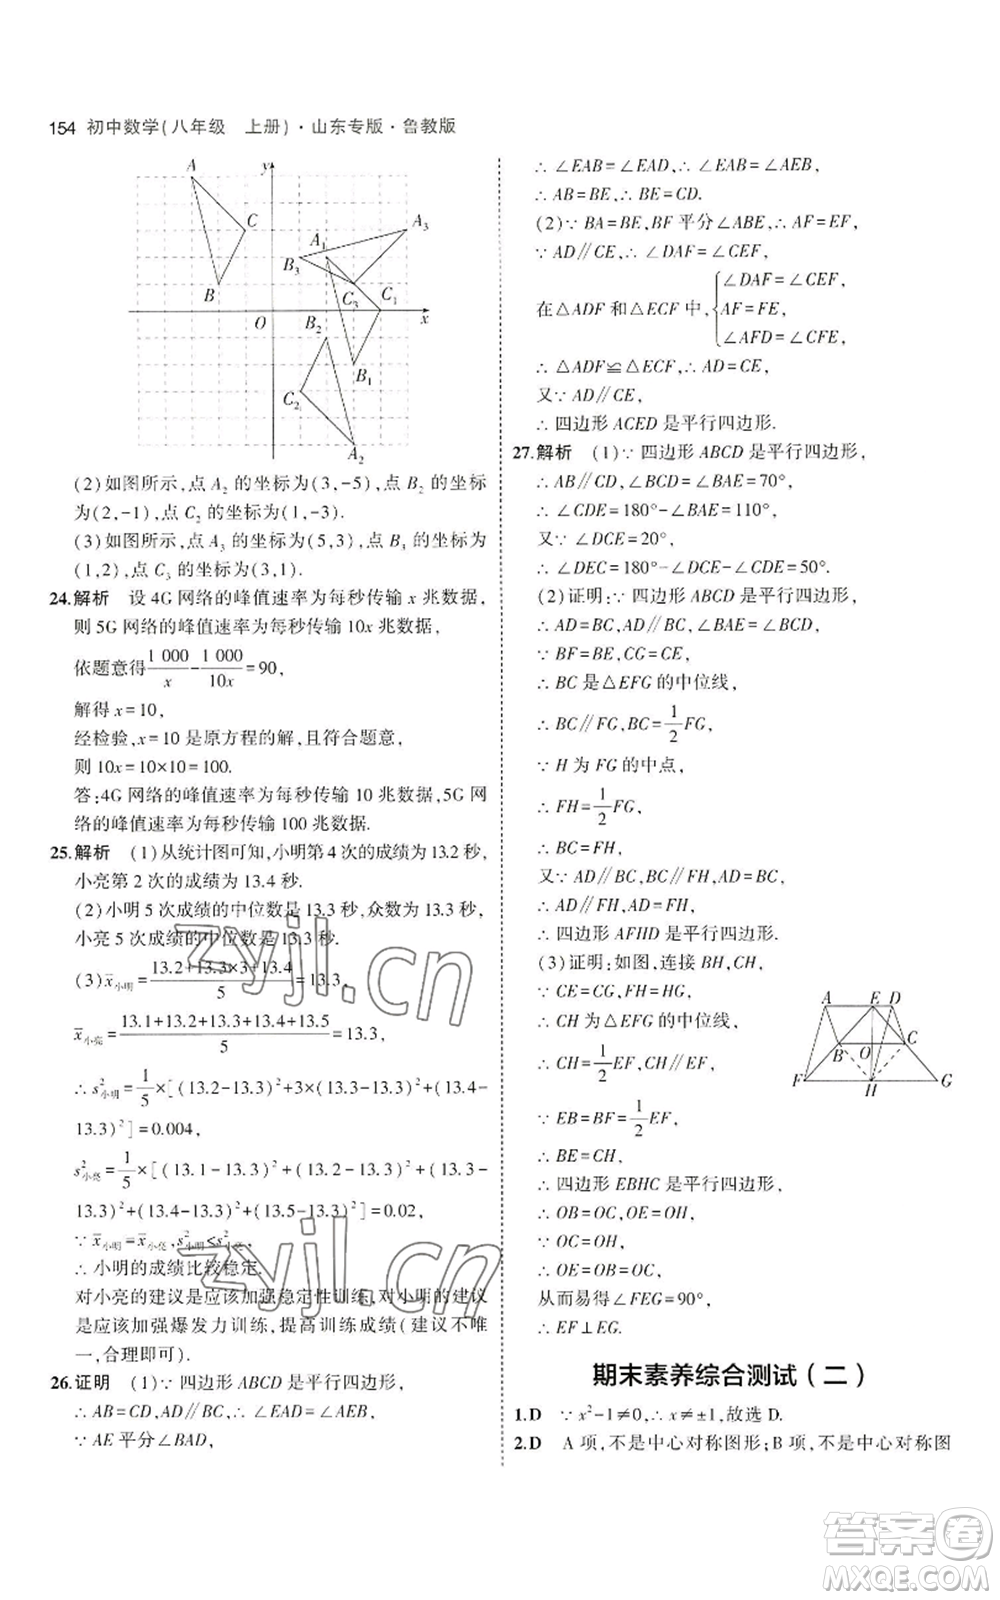 154 初中数学(八年级 上册)·山东专版·鲁教版
A
y
C
A₁
A₃
B₃
B
C₃
C₁
O
B₂
x
B₁
C₂
A₂
(2)如图所示,点 A₂ 的坐标为(3,-5),点 B₂ 的坐标
为(2,-1),点 C₂ 的坐标为(1,-3).
(3)如图所示,点 A₃ 的坐标为(5,3),点 B₃ 的坐标为
(1,2),点 C₃ 的坐标为(3,1).
24.解析 设 4G 网络的峰值速率为每秒传输 x 兆数据,
则 5G 网络的峰值速率为每秒传输 10x 兆数据,
依题意得 1 000/x - 1 000/10x = 90,
解得 x=10,
经检验,x=10 是原方程的解,且符合题意,
则 10x=10×10=100.
答:4G 网络的峰值速率为每秒传输 10 兆数据,5G 网
络的峰值速率为每秒传输 100 兆数据.
25.解析 (1)从统计图可知,小明第 4 次的成绩为 13.2 秒,
小亮第 2 次的成绩为 13.4 秒.
(2)小明 5 次成绩的中位数是 13.3 秒,众数为 13.3 秒,
小亮 5 次成绩的中位数是 13.3 秒.
(3) x̄小明 = (13.2+13.3×3+13.4)/5 = 13.3,
x̄小亮 = (13.1+13.2+13.3+13.4+13.5)/5 = 13.3,
∴ s²小明 = 1/5 ×[(13.2-13.3)²+(13.3-13.3)²+(13.4-
13.3)²]=0.004,
s²小亮 = 1/5 ×[(13.1-13.3)²+(13.2-13.3)²+(13.3-
13.3)²+(13.4-13.3)²+(13.5-13.3)²]=0.02,
∵ x̄小明 = x̄小亮, s²小明 < s²小亮,
∴ 小明的成绩比较稳定.
对小亮的建议是应该加强稳定性训练,对小明的建议
是应该加强爆发力训练,提高训练成绩(建议不唯
一,合理即可).
26.证明 (1)∵ 四边形 ABCD 是平行四边形,
∴ AB=CD,AD∥BC,∴ ∠EAD=∠AEB,
∵ AE 平分∠BAD,
∴ ∠EAB=∠EAD,∴ ∠EAB=∠AEB,
∴ AB=BE,∴ BE=CD.
(2)∵ BA=BE,BF 平分∠ABE,∴ AF=EF,
∵ AD∥CE,∴ ∠DAF=∠CEF,
在△ADF 和△ECF 中, {∠DAF=∠CEF,
AF=FE,
∠AFD=∠CFE,
∴ △ADF≌△ECF,∴ AD=CE,
又∵ AD∥CE,
∴ 四边形 ACED 是平行四边形.
27.解析 (1)∵ 四边形 ABCD 是平行四边形,
∴ AB∥CD,∵ ∠BAE=70°,
∴ ∠CDE=180°-∠BAE=110°,
又∵ ∠DCE=20°,
∴ ∠DEC=180°-∠DCE-∠CDE=50°.
(2)证明:∵ 四边形 ABCD 是平行四边形,
∴ AD=BC,AD∥BC,∠BAE=∠BCD,
∵ BF=BE,CG=CE,
∴ BC 是△EFG 的中位线,
∴ BC∥FG,BC= 1/2 FG,
∵ H 为 FG 的中点,
∴ FH= 1/2 FG,
∴ BC=FH,
又∵ AD∥BC,AD=BC,BC∥FH,
∴ AD∥FH,AD=FH,
∴ 四边形 AFHD 是平行四边形.
(3)证明:如图,连接 BH,CH,
∵ CE=CG,FH=HG,
∴ CH 为△EFG 的中位线,
∴ CH= 1/2 EF,CH∥EF,
∵ EB=BF= 1/2 EF,
∴ BE=CH,
∴ 四边形 EBHC 是平行四边形,
∴ OB=OC,OE=OH,
∵ OC=OH,
∴ OE=OB=OC,
从而易得∠FEG=90°,
∴ EF⊥EG.
A
E
D
B
O
C
F
H
G
期末素养综合测试(二)
1.D ∵ x²-1≠0,∴ x≠±1,故选 D.
2.D A 项,不是中心对称图形;B 项,不是中心对称图
zyjl.cn
zyjl.cn
答案卷
MXQE.COM